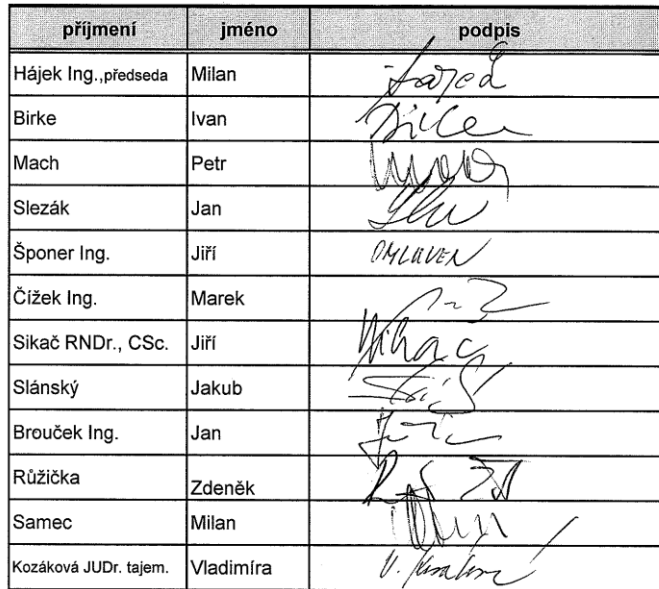 příjmení jméno podpis
Hájek Ing.,předseda Milan
Birke Ivan
Mach Petr
Slezák Jan
Šponer Ing. Jiří OMLUVEN
Čížek Ing. Marek
Sikač RNDr., CSc. Jiří
Slánský Jakub
Brouček Ing. Jan
Růžička Zdeněk
Samec Milan
Kozáková JUDr. tajem. Vladimíra